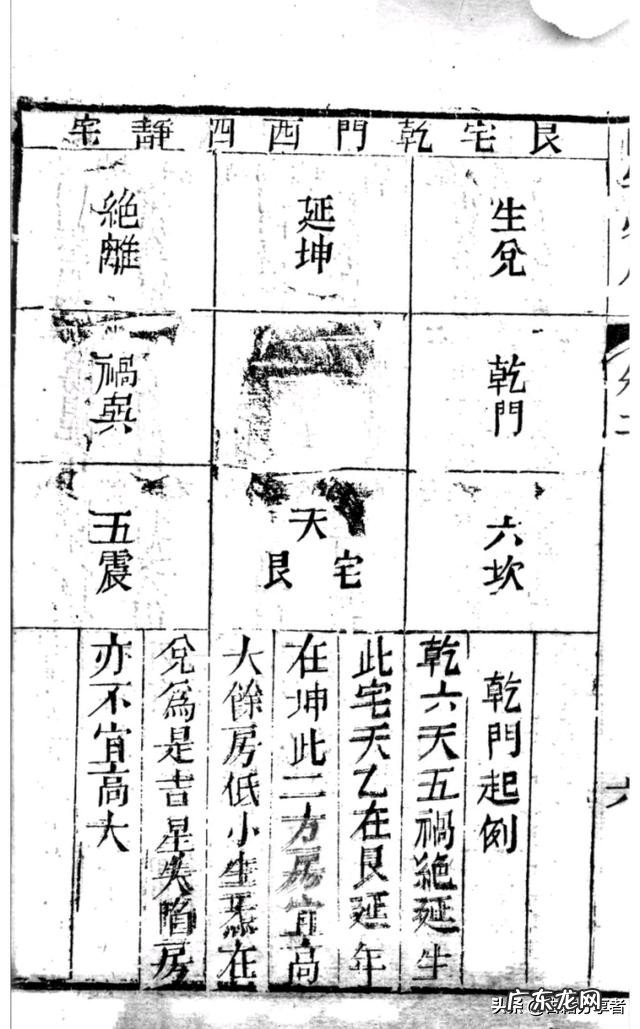 艮宅乾門西四靜宅
生兌
延坤
絕離
乾門
禍㢲
六坎
天
宅艮
五震
乾門起例
乾六天五禍絶延生
此宅天乙在艮延年
在坤此二方房宜高
大餘房低小生炁在
兌爲是吉星失陷房
亦不宜高大
六
头条
广东龙网